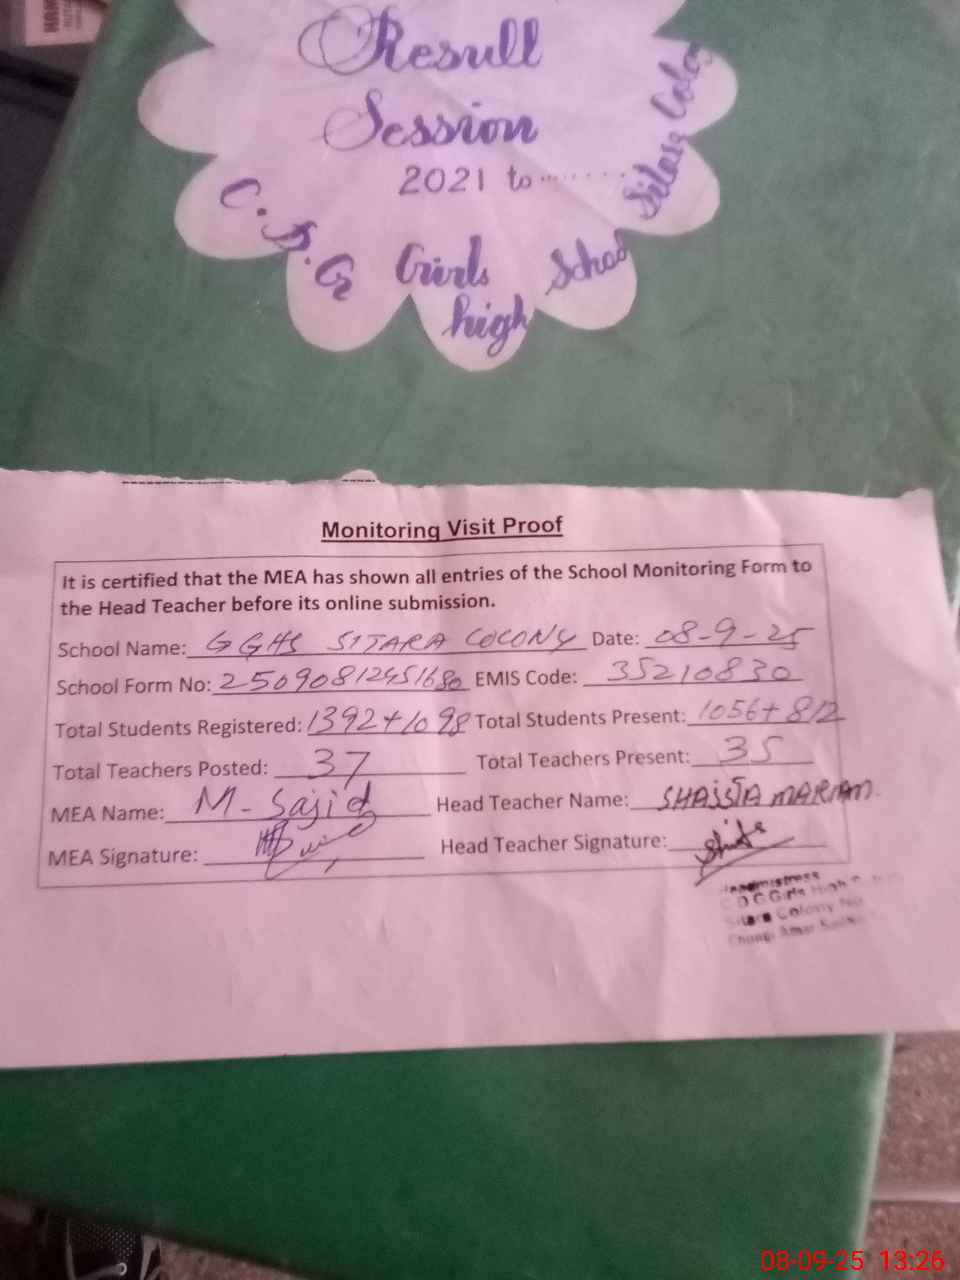 Result
Session
2021 to ........
C.D.G Girls high School Sitara Colo
Monitoring Visit Proof
It is certified that the MEA has shown all entries of the School Monitoring Form to
the Head Teacher before its online submission.
School Name: GGHS SITARA COLONY Date: 08-9-25
School Form No: EMIS Code: 35210830
Total Students Registered: 1392+1098 Total Students Present: 1056+812
Total Teachers Posted: 37 Total Teachers Present: 35
MEA Name: M-Sajid Head Teacher Name: SHAISTA MARIAM.
MEA Signature: Head Teacher Signature:
Headmistress
C D G Girls High
Sitara Colony No
Chungi Amar
08-09-25 13:26